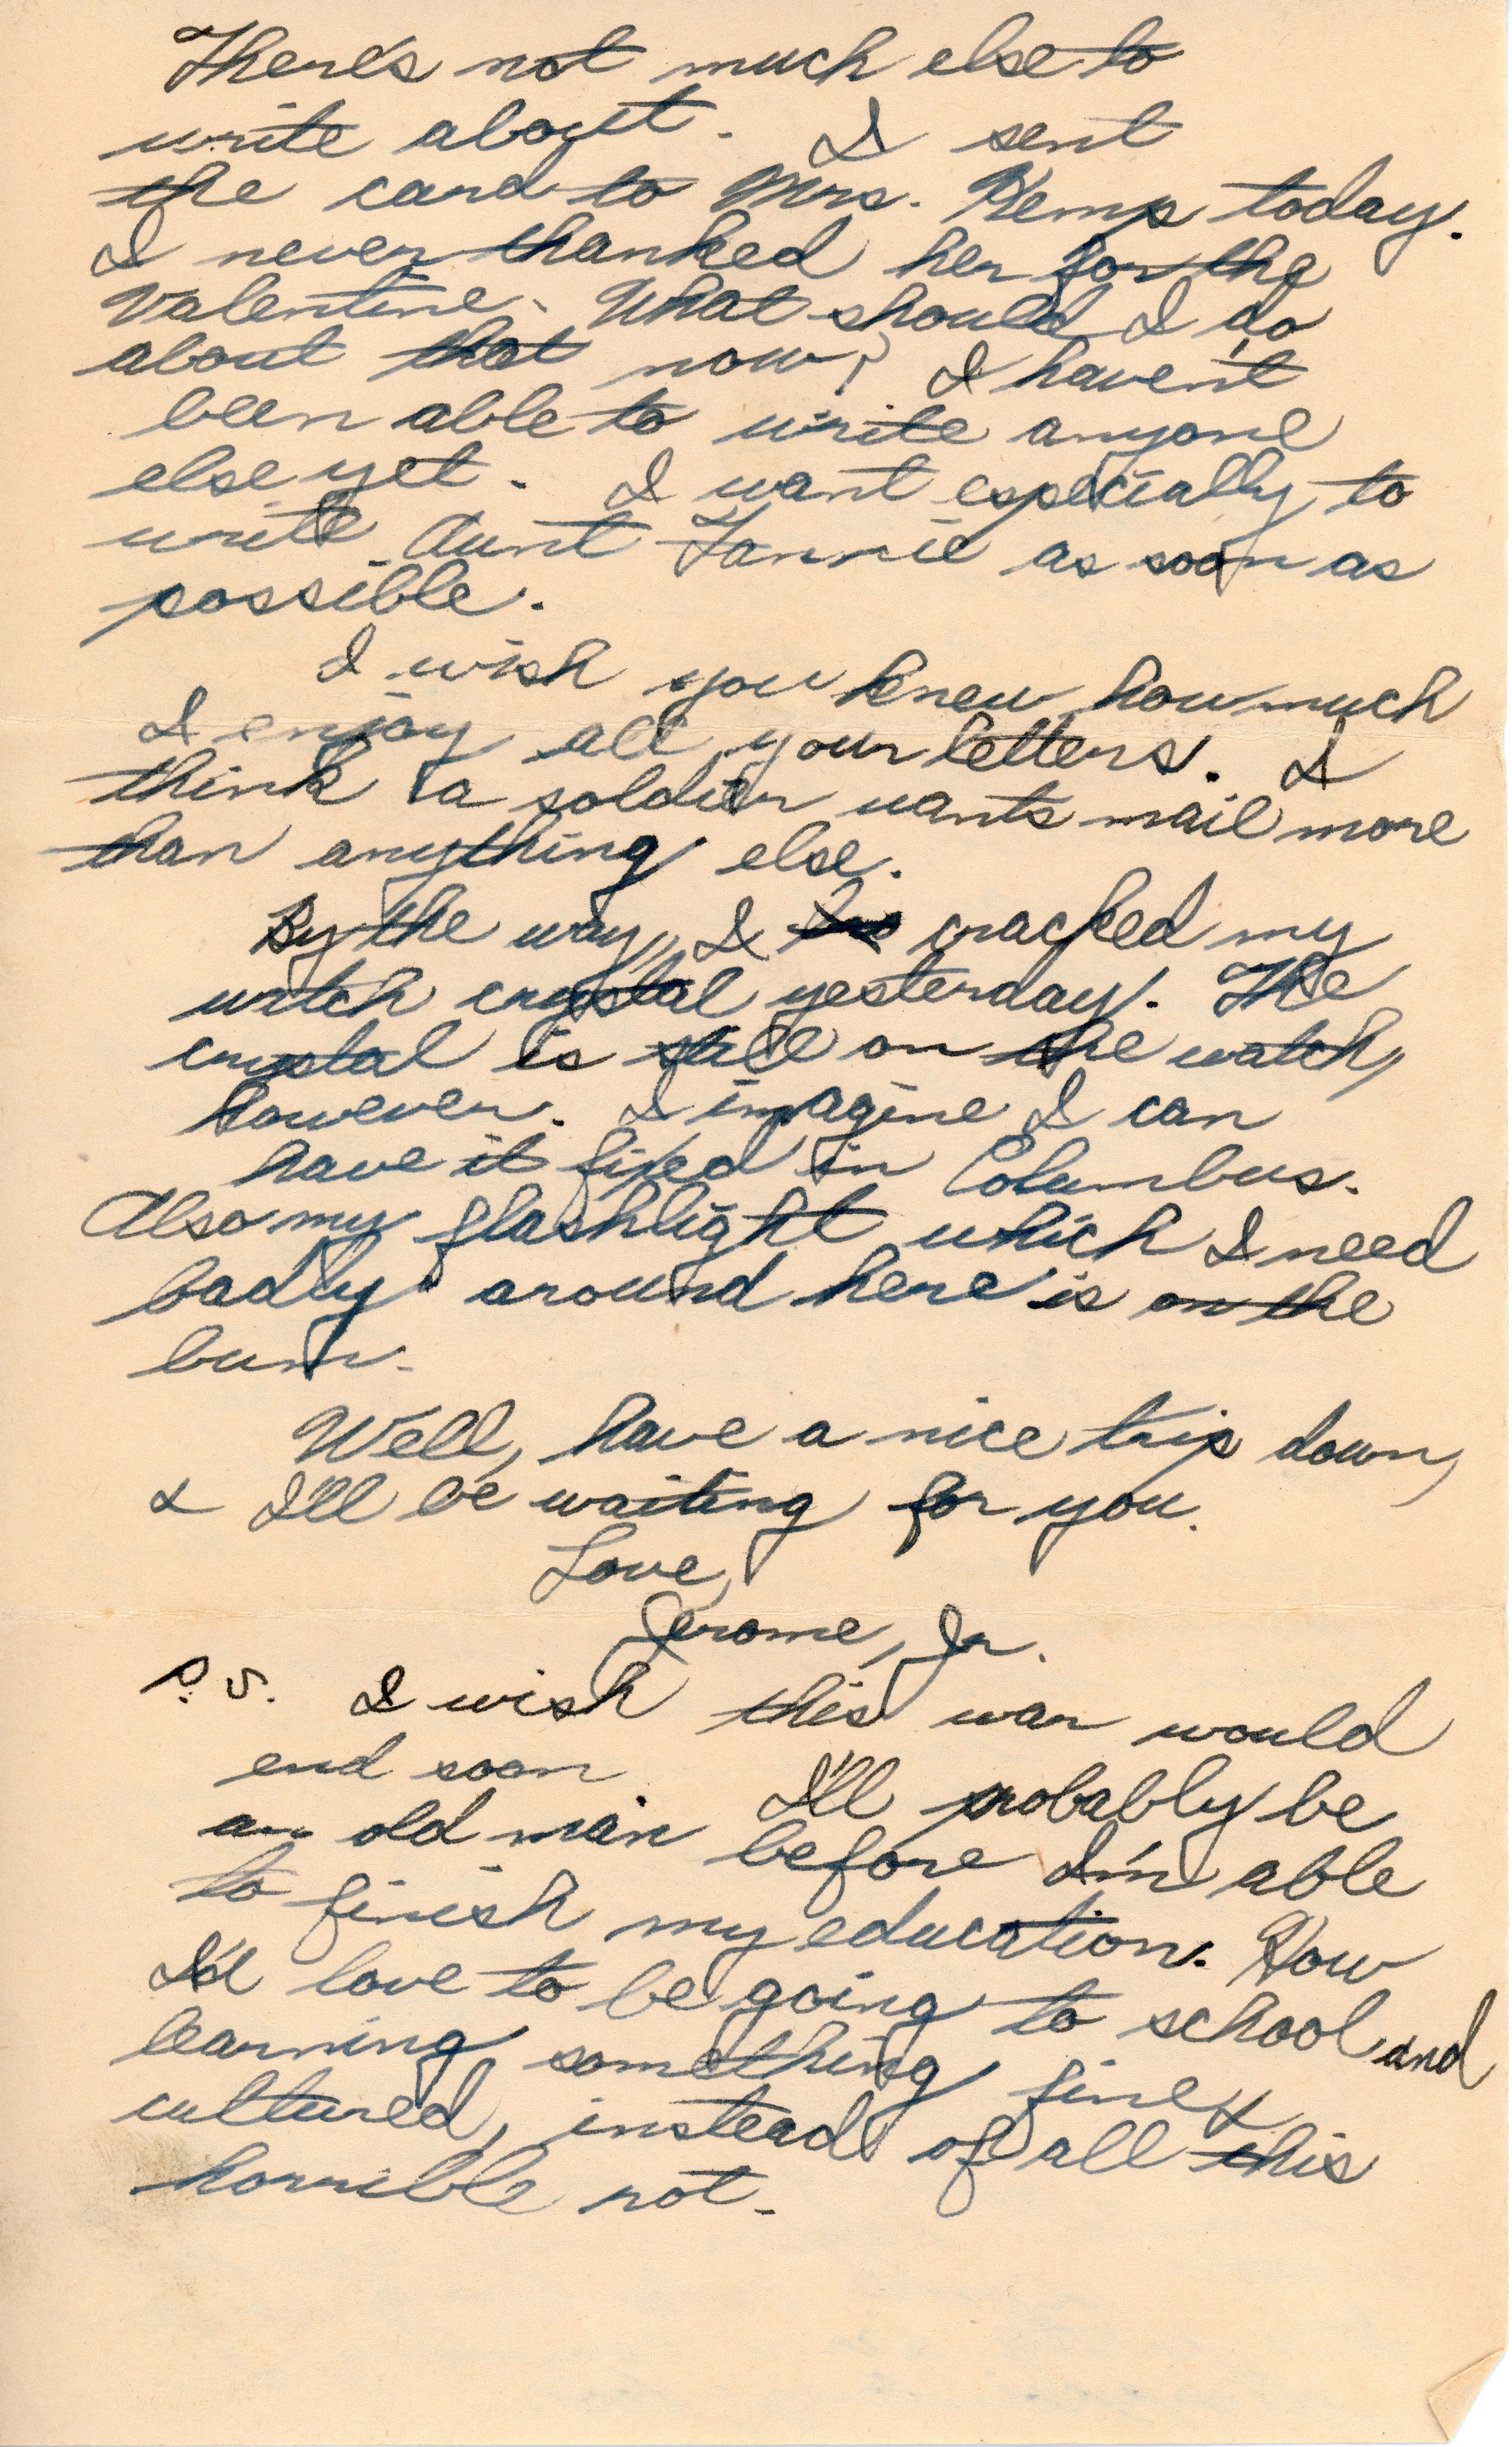 There's not much else to
write about. I sent
the card to Mrs. Kemp today.
I never thanked her for the
Valentine. What should I do
about that now? I haven't
been able to write anyone
else yet. I want especially to
write Aunt Fannie as soon as
possible.
I wish you knew how much
I enjoy all your letters. I
think a soldier wants mail more
than anything else.
By the way, I cracked my
watch crystal yesterday. The
crystal is still on the watch,
however. I imagine I can
have it fixed in Columbus.
Also my flashlight which I need
badly around here is on the
bum.
Well, have a nice trip down,
& I'll be waiting for you.
Love,
Jerome, Jr.
P.S. I wish this war would
end soon I'll probably be
an old man before I'm able
to finish my education. How
I'd love to be going to school and
learning something fine &
cultured, instead of all this
horrible rot.